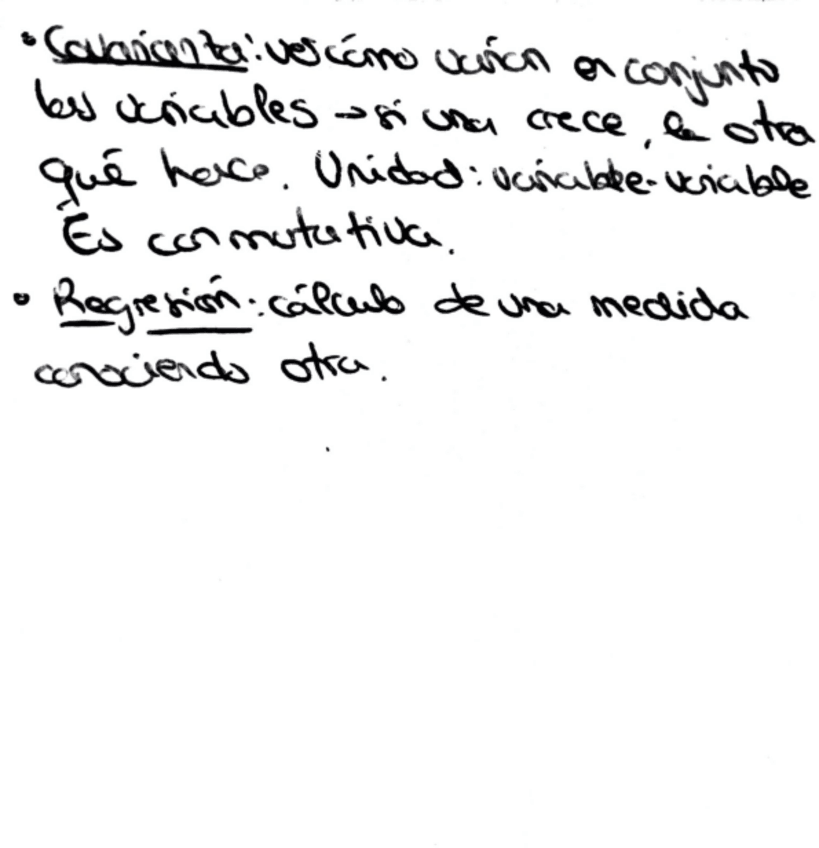 • Covarianza: ver cómo varían en conjunto
las variables → si una crece, la otra
qué hace. Unidad: variable·variable
Es conmutativa.
• Regresión: cálculo de una medida
conociendo otra.